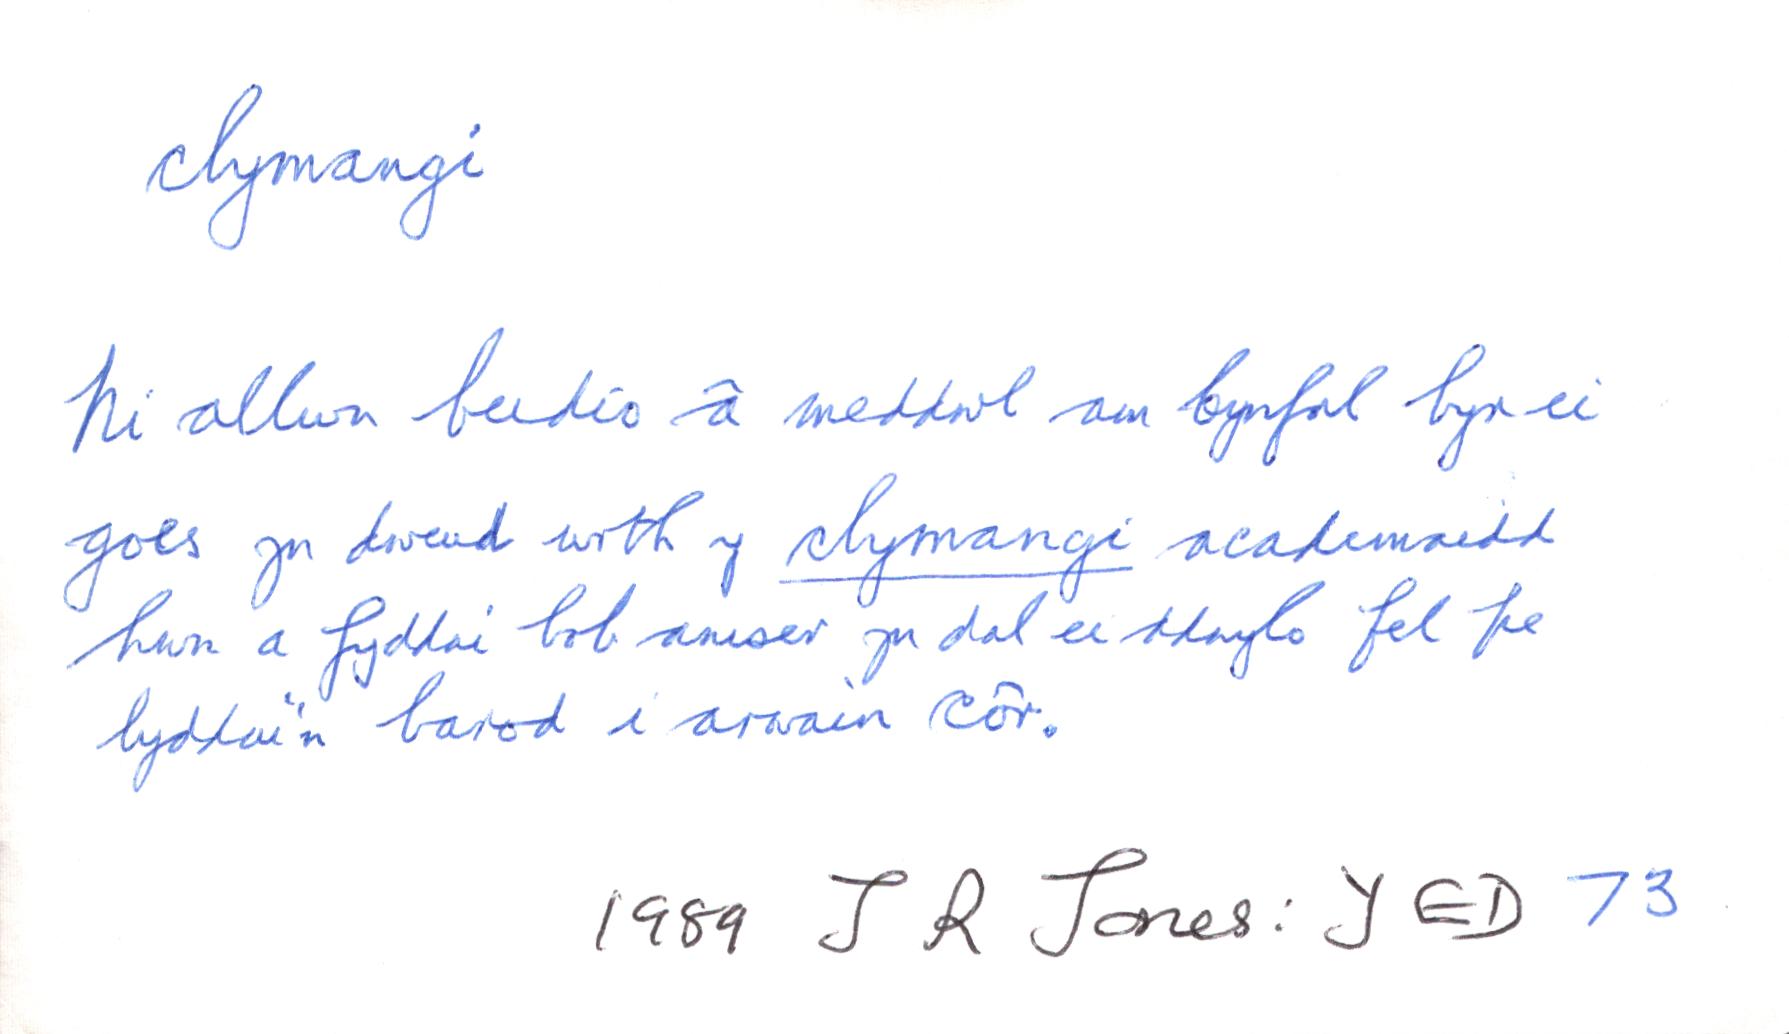 clymangi
Ni allwn beidio â meddwl am bynfol byr ei
goes yn dweud wrth y clymangi academaidd
hwn a fyddai bob amser yn dal ei ddwylo fel pe
byddai'n barod i arwain côr.
1989 J R Jones: Y ED 73